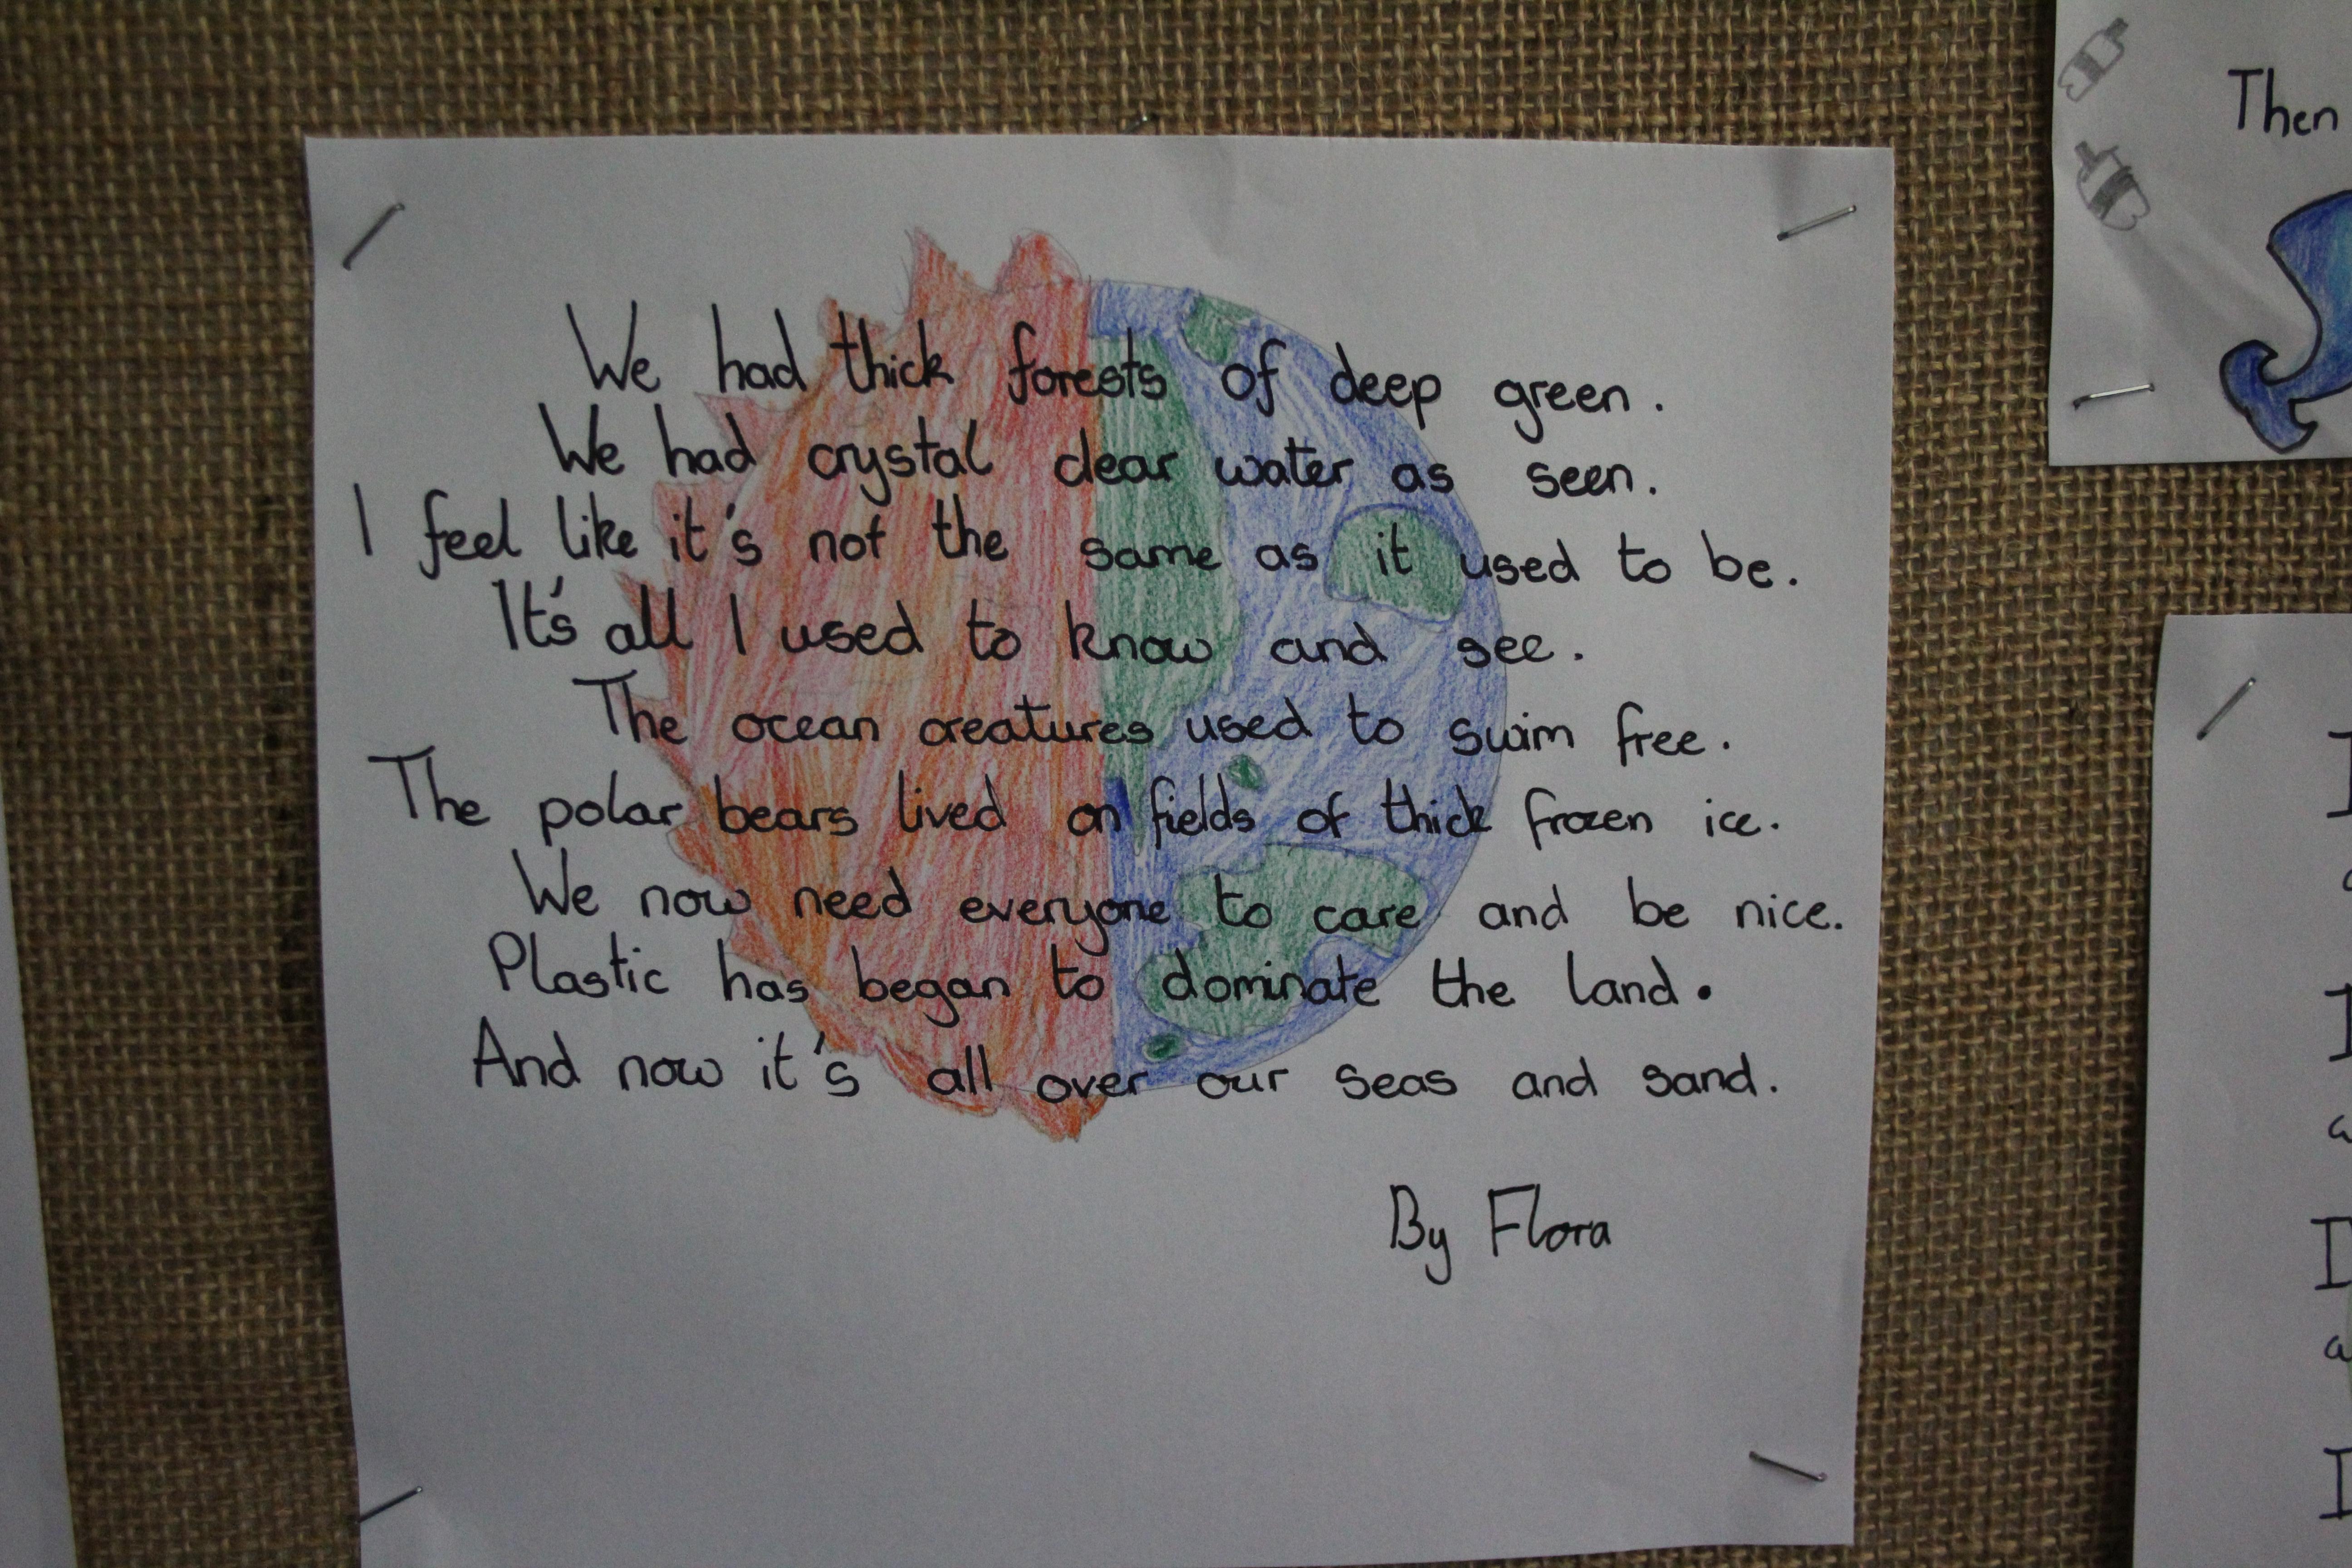 We had thick forests of deep green.
We had crystal clear water as seen.
I feel like it's not the same as it used to be.
It's all I used to know and see.
The ocean creatures used to swim free.
The polar bears lived on fields of thick frozen ice.
We now need everyone to care and be nice.
Plastic has began to dominate the land.
And now it's all over our seas and sand.
By Flora
Then